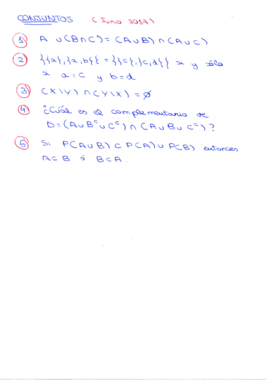 CONJUNTOS (Junio 2014)
1 A ∪ (B∩C) = (A∪B) ∩ (A∪C)
2 {{a},{a,b}} = {{c},{c,d}} si y sólo
si a=c y b=d
3 (X\Y) ∩ (Y\X) = ∅
4 ¿Cuál es el complementario de
D = (A∪Bᶜ∪Cᶜ) ∩ (A∪B∪Cᶜ)?
5 Si P(A∪B) ⊂ P(A) ∪ P(B) entonces
A⊂B ó B⊂A